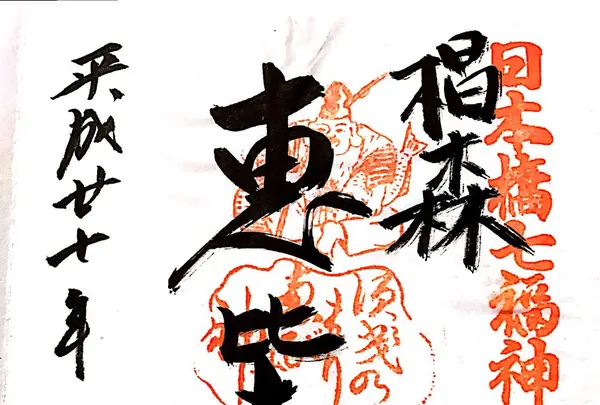 日本橋七福神
椙森
恵比
平成廿十年